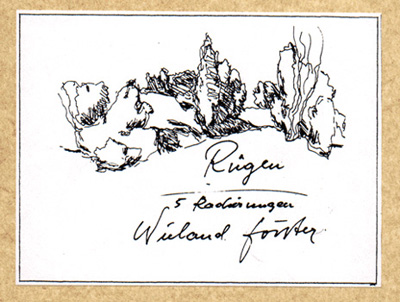 Rügen
5 Radierungen
Wieland Förster